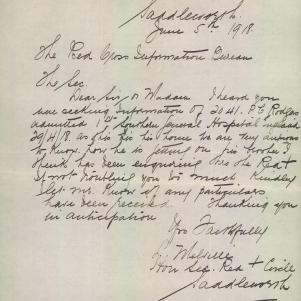 Saddleworth.
June 5th 1918.
The Red Cross Information Bureau
The Sec
Dear Sir or Madam I heard you
are seeking information of 2041. Pt Rodgers
admitted 1st Southern General Hospital England
29/4/18 as his his home we are very anxious
to know how he is getting on his brother I
think has been enquiring the Red +
if not troubling you too much kindly
let me know if any particulars
have been received Thanking you
in anticipation
Yrs Faithfully
Hon Sec. Red + Circle
Saddleworth